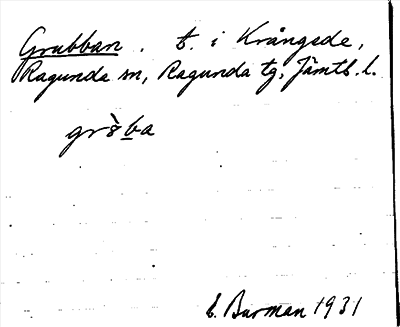 Grubban. t. i Krångede,
Ragunda sn, Ragunda tg, Jämtl. l.
E. Burman 1931